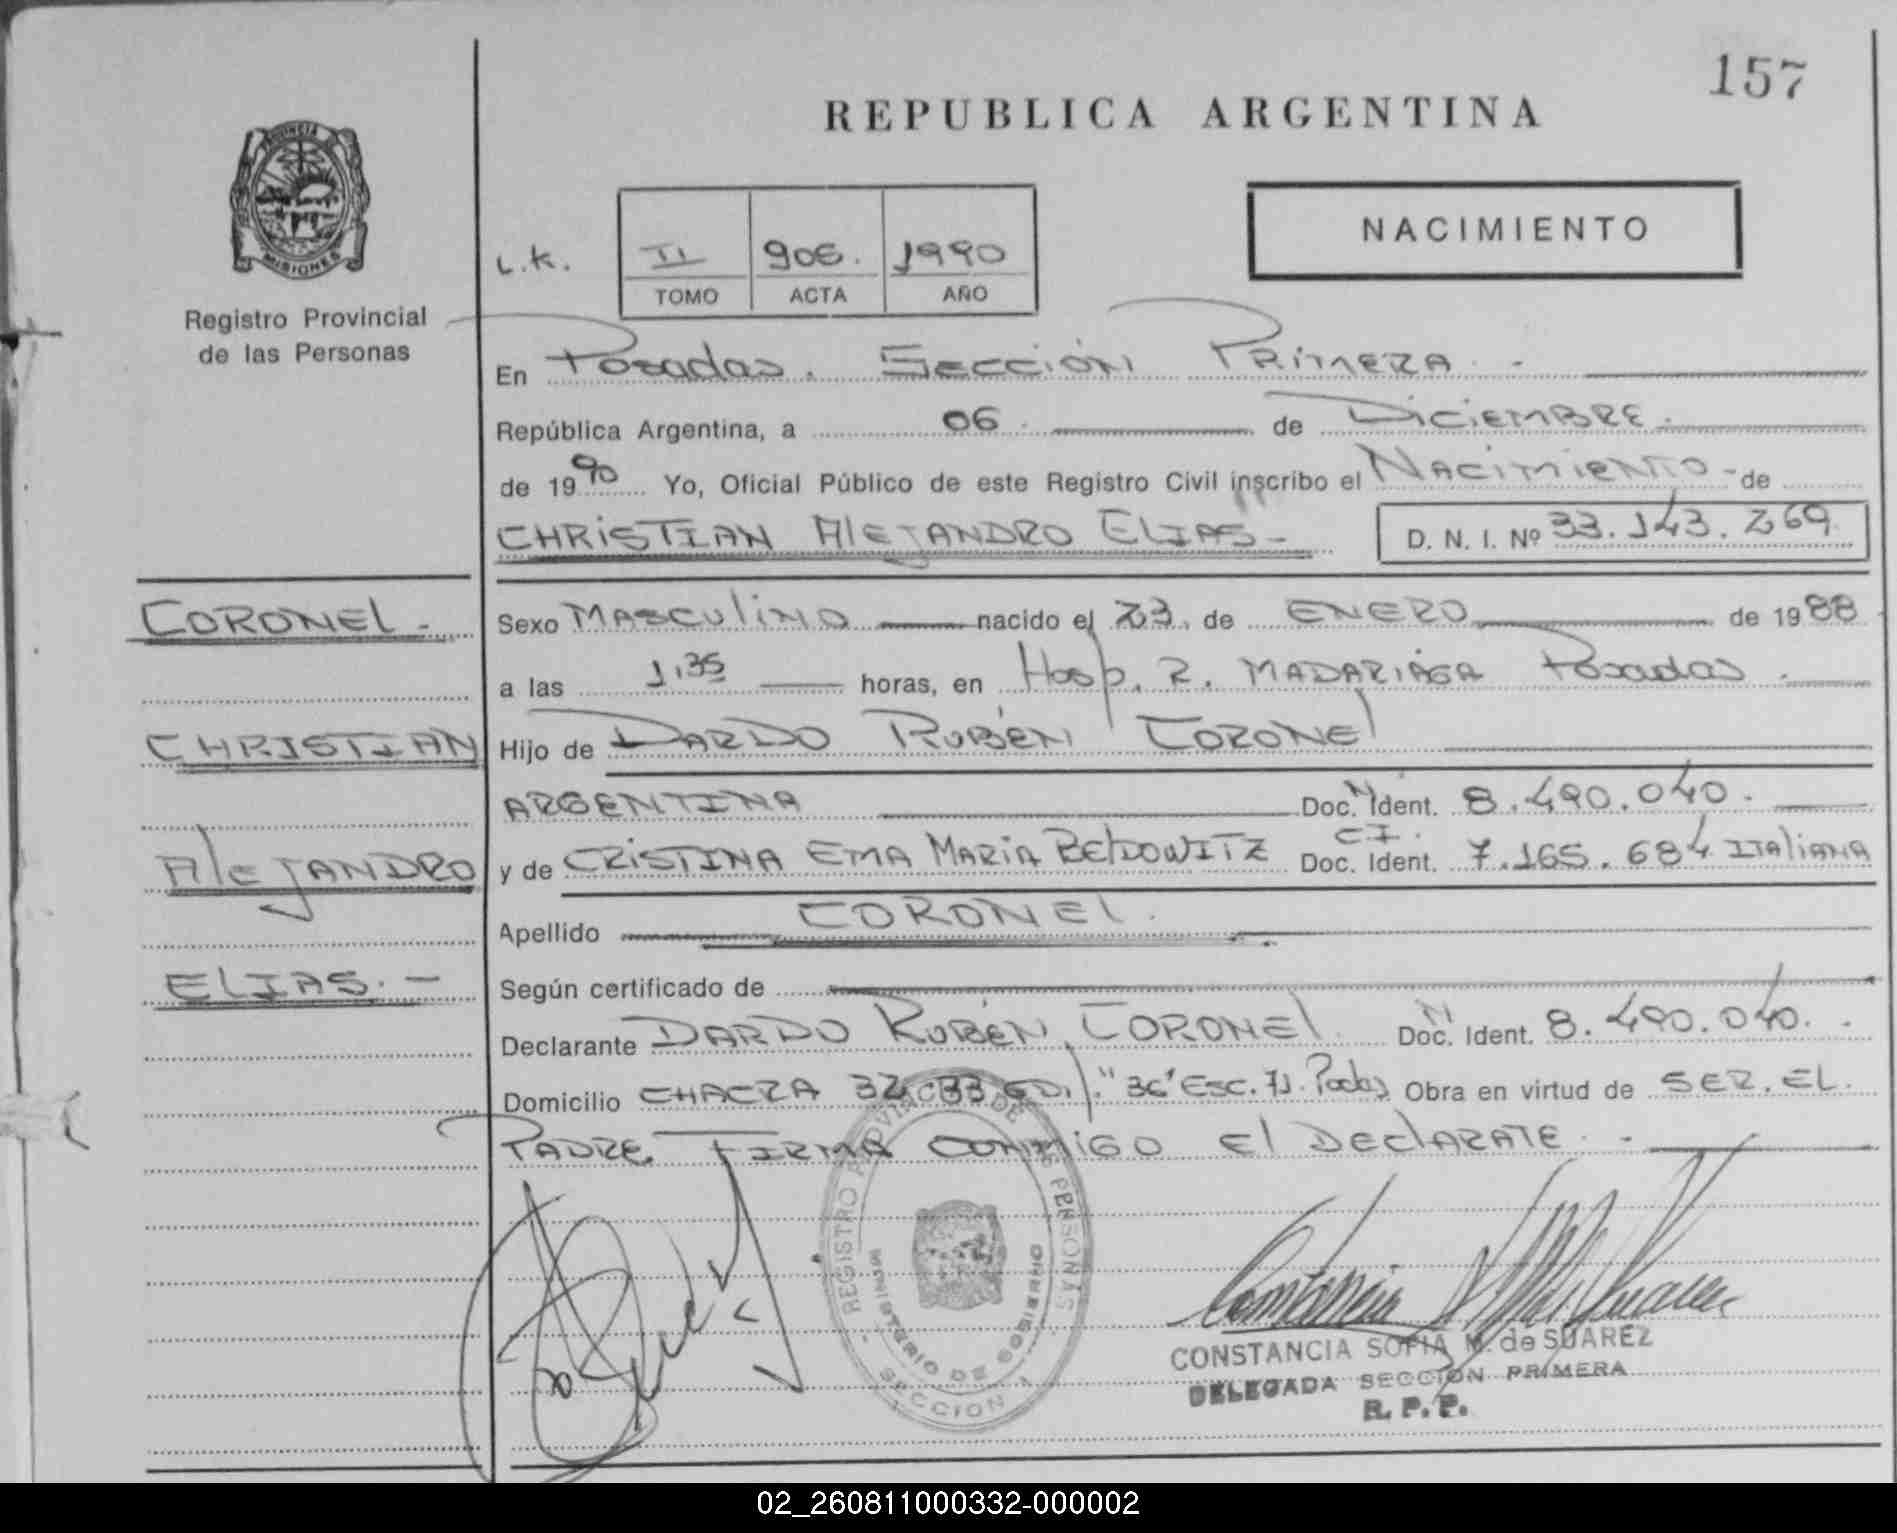 157
REPUBLICA ARGENTINA
PROVINCIA DE MISIONES
Registro Provincial
de las Personas
L.K.
II 906. 1990
TOMO ACTA AÑO
NACIMIENTO
En Posadas. Sección Primera. -
República Argentina, a 06. de Diciembre.
de 1990 Yo, Oficial Público de este Registro Civil inscribo el Nacimiento - de
CHRISTIAN AlEJANDRO ELIAS - D. N. I. Nº 33.143.269
CORONEL -
CHRISTIAN
AlEJANDRO
ELIAS. -
Sexo MASCUlINO nacido el 23. de ENERO de 1988
a las 1,35 horas, en Hosp. R. MADARIAGA Posadas.
Hijo de DARDO RUBÉN CORONEl
ARGENTINA Doc. Ident. 8.490.040.
y de CRISTINA EMA MARIA Doc. Ident. C.I. 7.165.684 ITAliANA
Apellido CORONEl.
Según certificado de
Declarante DARDO RUBÉN CORONEl. Doc. Ident. 8.490.040.
Domicilio CHACRA 32-33 EDI. "3C" ESC. Posadas Obra en virtud de SER. EL.
PADRE. FIRMA CONMIGO El DEClARATE. -
REGISTRO PROVINCIAL DE LAS PERSONAS
MINISTERIO DE GOBIERNO
SECCION 1
CONSTANCIA SOFIA M. de SUAREZ
DELEGADA SECCION PRIMERA
R. P. P.
02_260811000332-000002